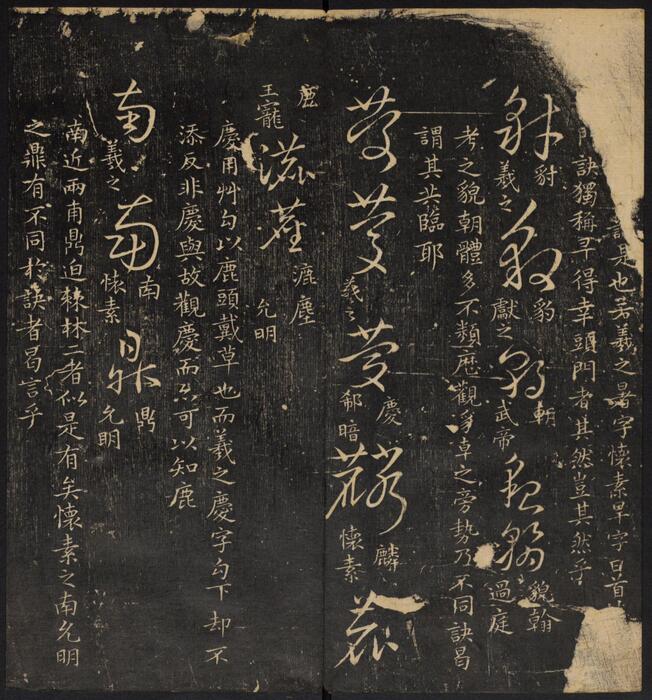 訣是也若羲之暑字懷素旱字日首
訣獨稱早得幸頭門者其然豈其然乎
豺 豹 朝 貌翰
羲之 獻之 武帝 過庭
考之貌朝體多不類歷觀淨草之旁勢乃不同訣曷
謂其共臨耶
慶 麟
羲之 郗暗 懷素
鹿 漉塵
王寵 允明
慶用艸勾以鹿頭戴草也而羲之慶字勾下却不
添反非慶與故觀慶而亦可以知鹿
南 南 鼎
羲之 懷素 允明
南近兩甫鼎迫棘林二者似是有矣懷素之南允明
之鼎有不同於訣者曷言乎